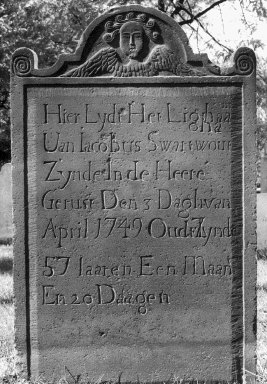 Hier Lydt Het Ligghaa
Uan Iacobus Swartwout
Zynde In de Heere
Gerust Den 3 Dagh van
April 1749 Oudt Zynde
57 Iaaren Een Maan
En 20 Daagen